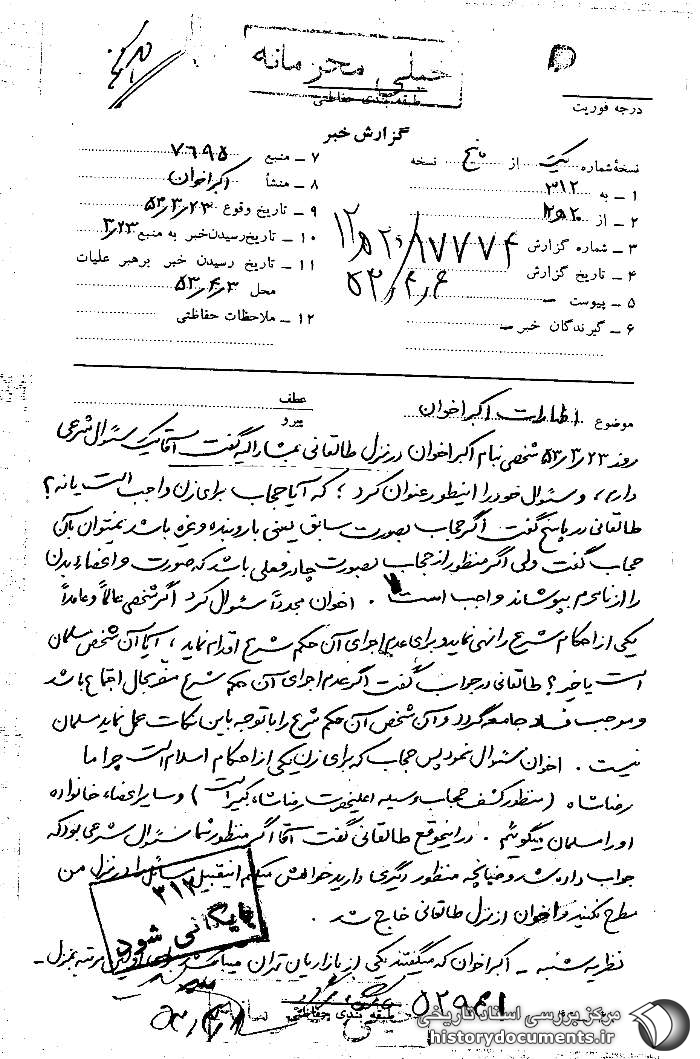 خیلی محرمانه
طبقه بندی حفاظتی
درجه فوریت
گزارش خبر
نسخهٔ شماره یک از پنج نسخه
۱ ـ به ۳۱۲
۲ ـ از ۲۰ ه ۱۲
۳ ـ شماره گزارش ۱۷۷۷۴ / ۲۰ ه ۱۲
۴ ـ تاریخ گزارش ۵۳/۴/۶
۵ ـ پیوست ـ
۶ ـ گیرندگان خبر ـ
۷ ـ منبع ۷۶۹۵
۸ ـ منشأ اکبر اخوان
۹ ـ تاریخ وقوع ۵۳/۳/۲۳
۱۰ ـ تاریخ رسیدن خبر به منبع ۳/۲۳
۱۱ ـ تاریخ رسیدن خبر برهبر عملیات
محل ۵۳/۴/۳
۱۲ ـ ملاحظات حفاظتی
موضوع اظهارات اکبر اخوان
عطف
پیرو
روز ۵۳/۳/۲۳ شخصی بنام اکبر اخوان در منزل طالقانی بمشارالیه گفت آقا یک سئوال شرعی
دارم، و سئوال خود را اینطور عنوان کرد؛ که آیا حجاب برای زن واجب است یا نه؟
طالقانی در پاسخ گفت اگر حجاب بصورت سابق یعنی با روبنده و غیره باشد نمیتوان بآن
حجاب گفت ولی اگر منظور از حجاب بصورت چادر فعلی باشد که صورت و اعضاء بدن
را از نامحرم بپوشاند واجب است. اخوان مجدداً سئوال کرد اگر شخصی عالماً و عامداً
یکی از احکام شرع را نهی نماید و برای عدم اجرای آن حکم شرع اقدام نماید، آیا آن شخص مسلمان
است یا خیر؟ طالقانی در جواب گفت اگر عدم اجرای آن حکم شرع مضر بحال اجتماع باشد
و موجب فساد جامعه گردد و آن شخص آن حکم شرع را با توجه باین نکات عمل نماید مسلمان
نیست. اخوان سئوال نمود پس حجاب که برای زن یکی از احکام اسلام است چرا ما
رضاشاه (منظور کشف حجاب بوسیله اعلیحضرت رضاشاه کبیر است) و سایر اعضاء خانواده
او را مسلمان میگوئیم. در اینموقع طالقانی گفت آقا اگر منظور شما سئوال شرعی بود که
جواب داده شد و چنانچه منظور دیگری دارید خواهش میکنم اینقبیل مسائل را در منزل من
مطرح نکنید و اخوان از منزل طالقانی خارج شد.
نظریه شنبه ـ اکبر اخوان که میگفتند یکی از بازاریان تهران میباشد مرتبه بمنزل ـ
۳۱۲
بایگانی شود
طبقه بندی حفاظتی
مرکز بررسی اسناد تاریخی
historydocuments.ir